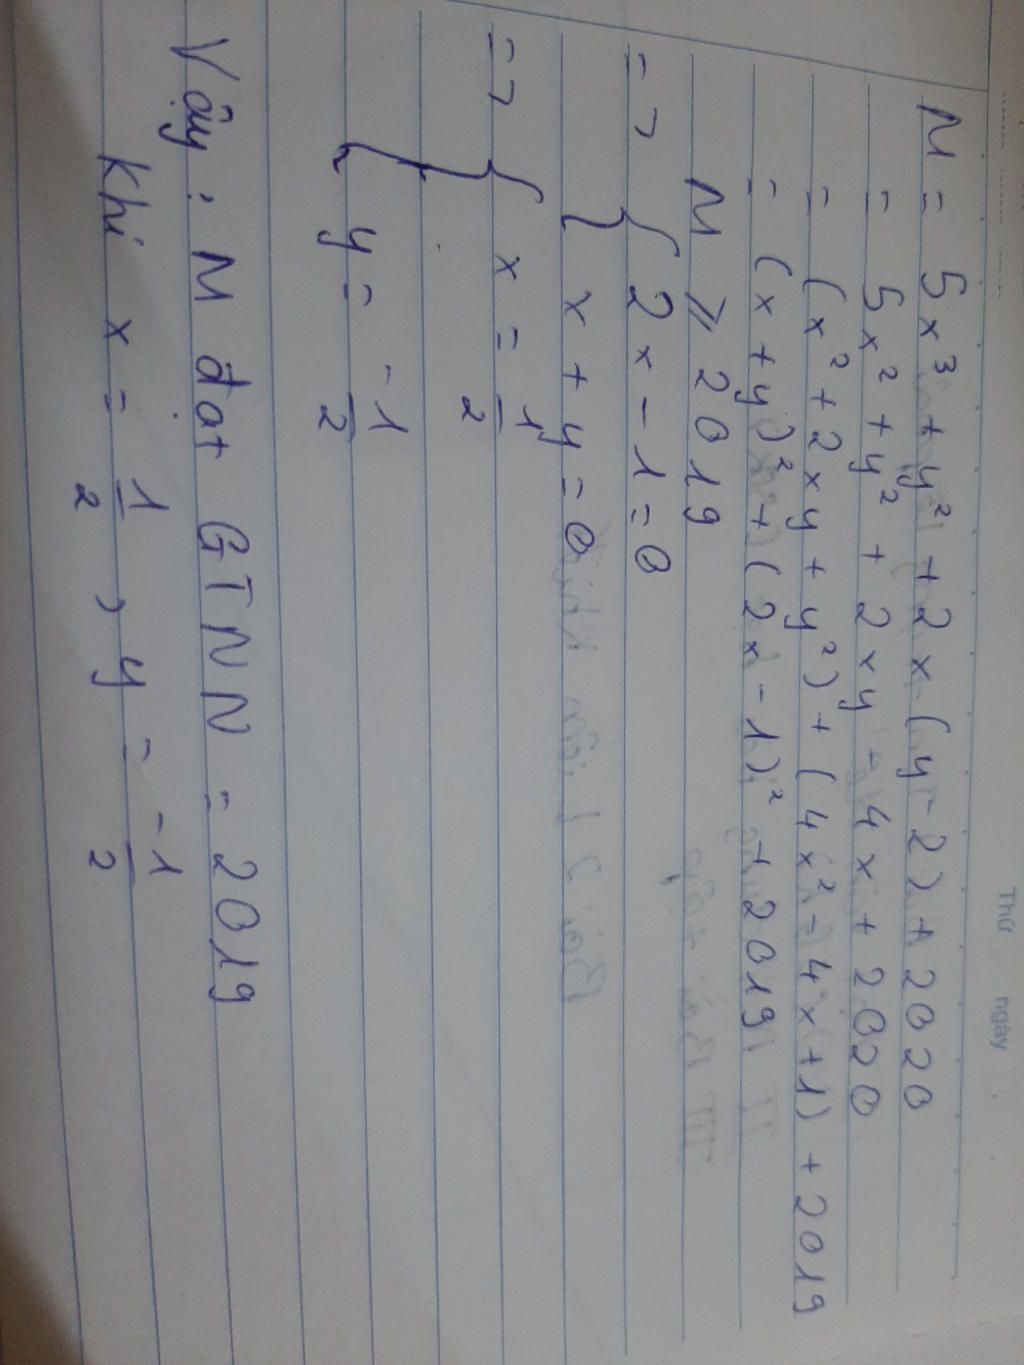 Thứ ngày
M = 5x³ + y² + 2x (y - 2) + 2020
= 5x² + y² + 2xy - 4x + 2020
= (x² + 2xy + y²) + (4x² - 4x + 1) + 2019
= (x + y)² + (2x - 1)² + 2019
M ⩾ 2019
=> { 2x - 1 = 0
x + y = 0
=> { x = 1/2
y = -1/2
Vậy : M đạt GTNN = 2019
Khi x = 1/2 , y = -1/2